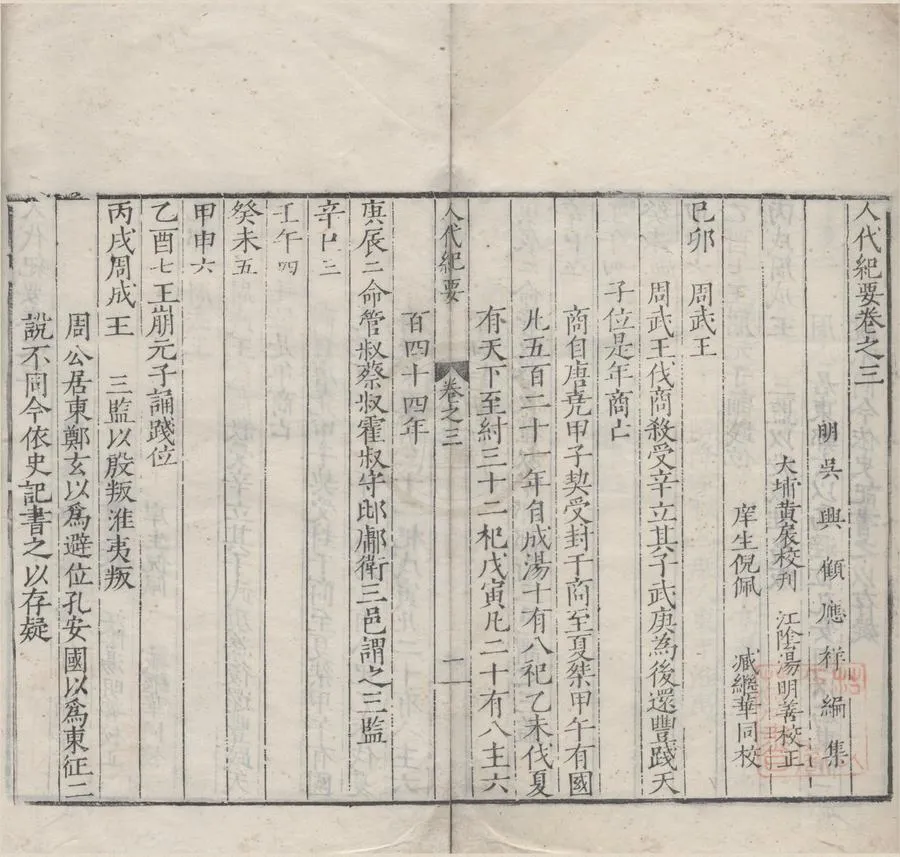 人代紀要卷之三
明吳興顧應祥編集
大埔黃扆校刊　江陰湯明善校正
庠生倪珮　臧繼華同校
己卯　周武王
周武王伐商殺受辛立其子武庚為後還豐踐天
子位是年商亡
商自唐堯甲子契受封于商至夏桀甲午有國
凡五百二十一年自成湯十有八祀乙未伐夏
有天下至紂三十二祀戊寅凡二十有八主六
百四十四年
人代紀要　卷之三　一
庚辰二命管叔蔡叔霍叔守邶鄘衛三邑謂之三監
辛巳三
壬午四
癸未五
甲申六
乙酉七王崩元子誦踐位
丙戌周成王　三監以殷叛淮夷叛
周公居東鄭玄以爲避位孔安國以爲東征二
說不同今依史記書之以存疑